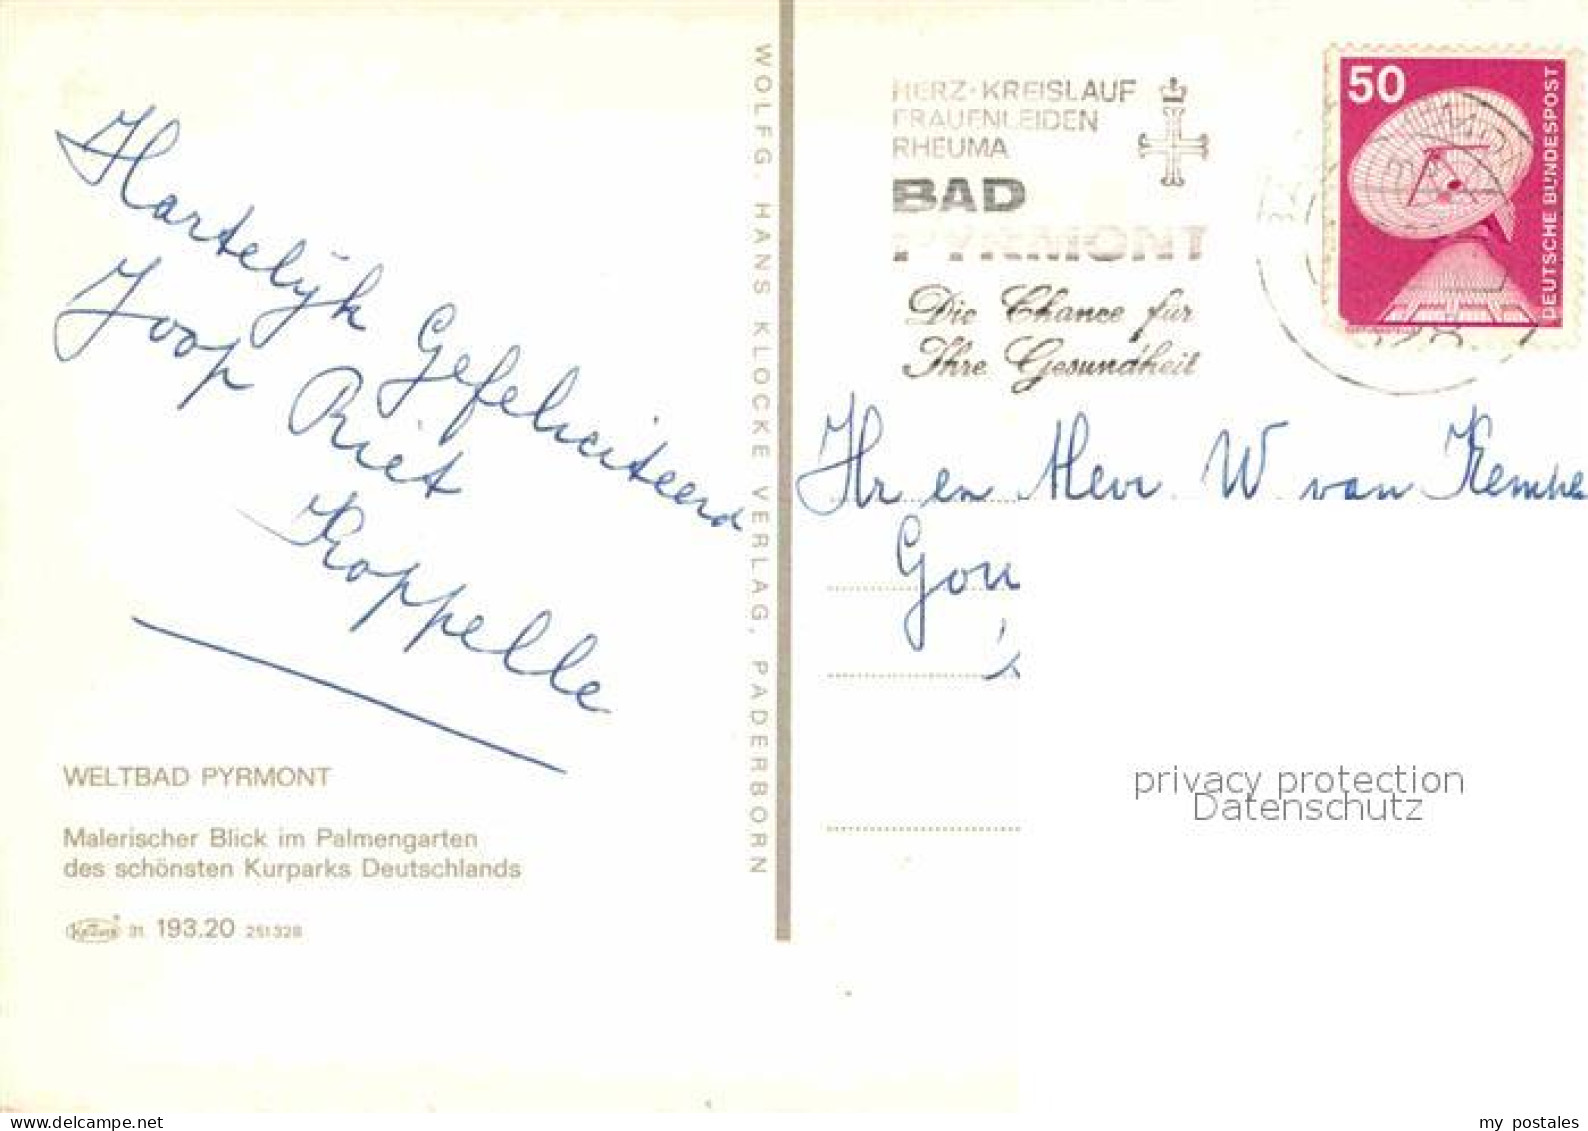 Hartelijk Gefeliciteerd
Joop Riet
Koppelle
WELTBAD PYRMONT
Malerischer Blick im Palmengarten
des schönsten Kurparks Deutschlands
31 193.20 251328
WOLFG. HANS KLOCKE VERLAG, PADERBORN
HERZ-KREISLAUF
FRAUENLEIDEN
RHEUMA
BAD
PYRMONT
Die Chance für
Ihre Gesundheit
50
DEUTSCHE BUNDESPOST
Hr en Mevr. W van Kempe
Gou
privacy protection
Datenschutz
my postales